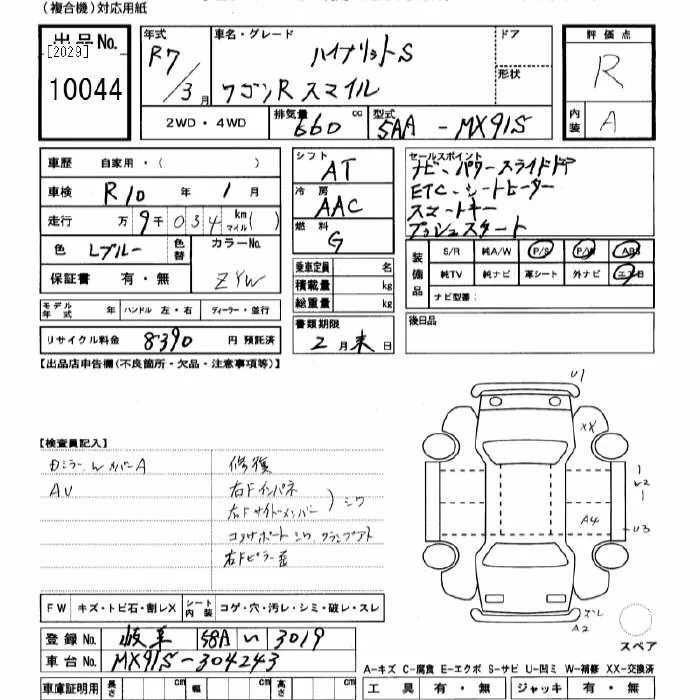 (複合機)対応用紙
出品No.
[2029]
10044
年式
R7/3月
車名・グレード
ハイブリットS
ワゴンR スマイル
ドア
形状
2WD・4WD
排気量 660 cc
型式 5AA-MX91S
評価点
R
内装 A
車歴 自家用・( )
車検 R10年1月
走行 万9千034 km マイル( )
色 Lブルー 色替
カラーNo. ZYW
保証書 有・無
シフト AT
冷房 AAC
燃料 G
乗車定員 名
積載量 kg
総重量 kg
セールスポイント
ナビ・パワースライドドア
ETC・シートヒーター
スマートキー
プッシュスタート
装備品
S/R 純A/W P/S P/W ABS
純TV 純ナビ 革シート 外ナビ エアB
ナビ型番:
モデル年式 年 ハンドル 左・右 ディーラー・並行
リサイクル料金 8390 円 預託済
書類期限
2月末日
後日品
【出品店申告欄(不良箇所・欠品・注意事項等)】
【検査員記入】
カバーA
AU
修復
右Fインパネ
右Fサイドメンバー シワ
コアサポート シワ クランプアト
右Fピラー歪
U1
XX
U2
A4
U3
A2
スペア
FW キズ・トビ石・割レX
シート内装 コゲ・穴・汚レ・シミ・破レ・スレ
登録No. 岐阜 58A い 3019
車台No. MX91S-304243
車庫証明用 長さ cm 幅 cm 高さ cm
A-キズ C-腐食 E-エクボ S-サビ U-凹ミ W-補修 XX-交換済
工具 有・無 ジャッキ 有・無